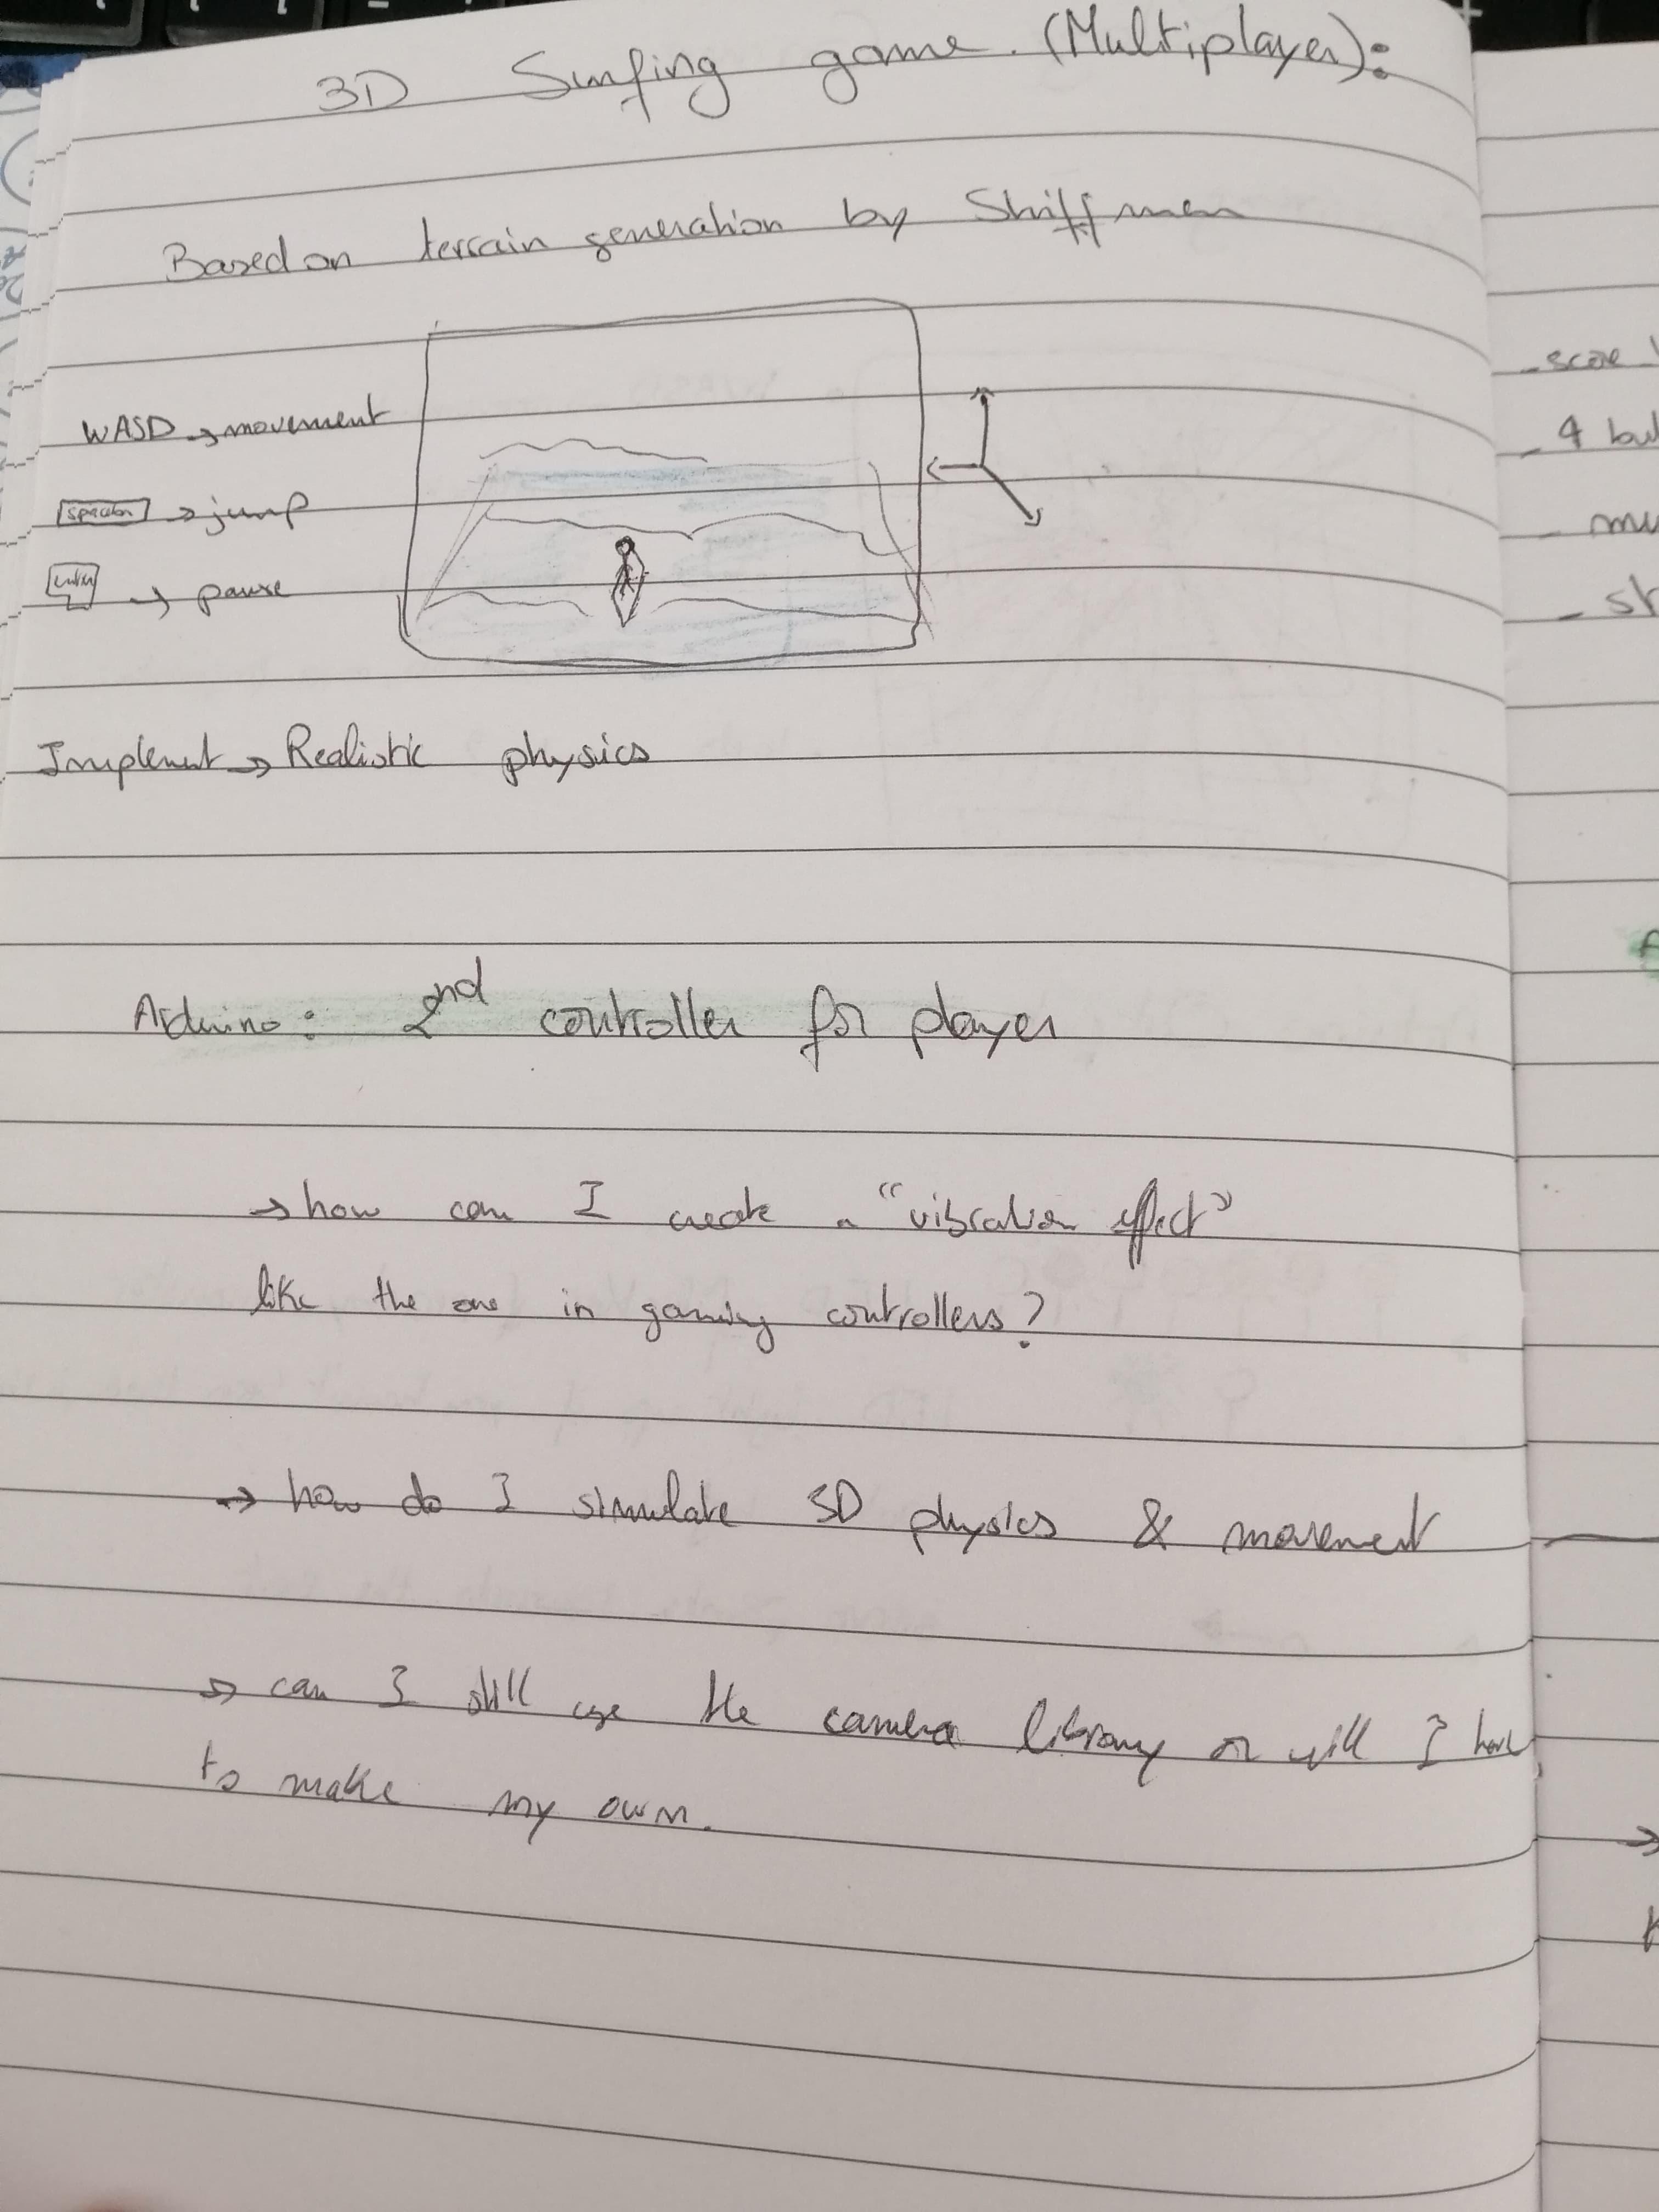 3D Surfing game. (Multiplayer):
Based on terrain generation by Shiffman
WASD → movement
spacebar → jump
enter → pause
Implement → Realistic physics
Arduino: 2nd controller for player
→ how can I create a "vibration effect"
like the one in gaming controllers?
→ how do I simulate 3D physics & movement
→ can I still use the camera library or will I have
to make my own.
- score
- 4